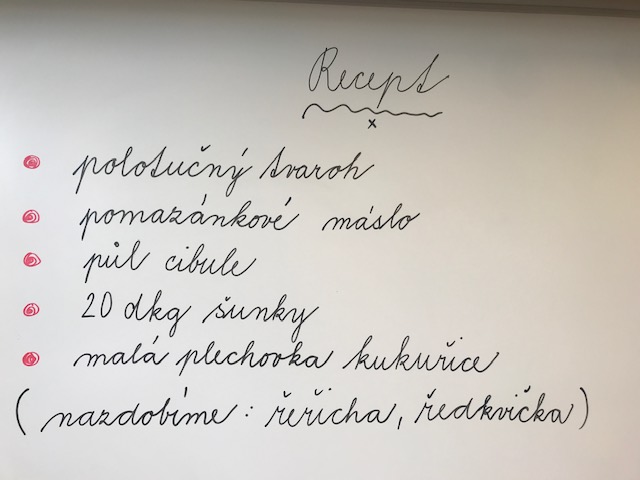 Recept
x
polotučný tvaroh
pomazánkové máslo
půl cibule
20 dkg šunky
malá plechovka kukuřice
(nazdobíme: řeřicha, ředkvička)